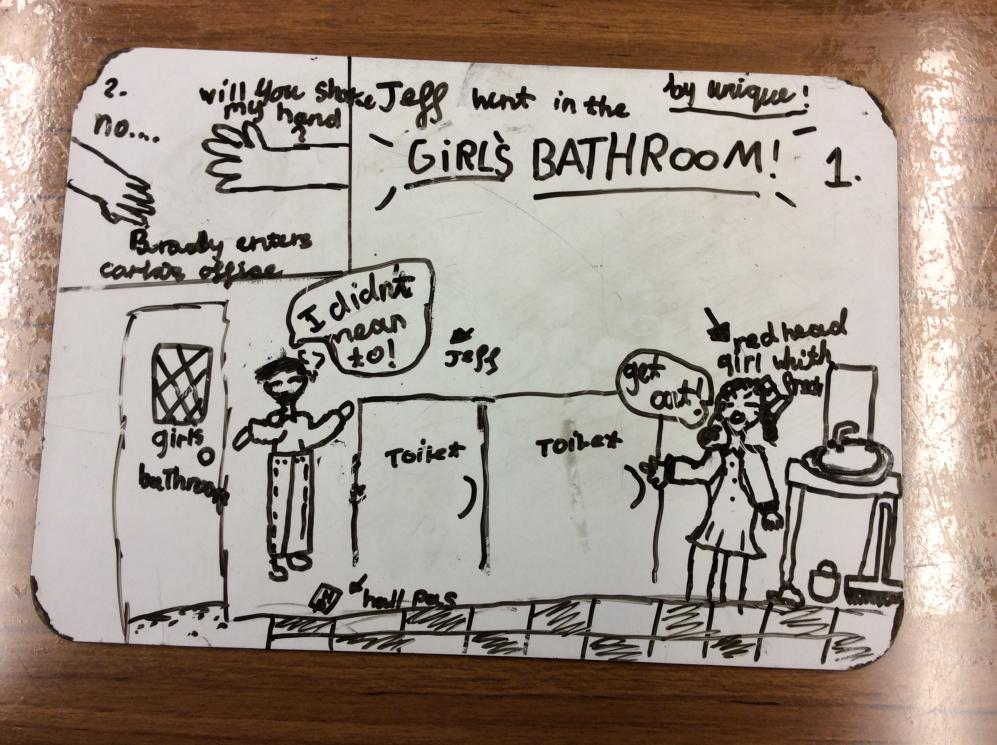 2.
no....
will you shake
my hand
?
Bradly enters
office
Jeff went in the
by unique!
GIRL'S BATHROOM!
1.
I didn't
mean
to!
Jeff
get
out!
red head
girl whith
girls
bathroom
Toilet
Toilet
hall pas